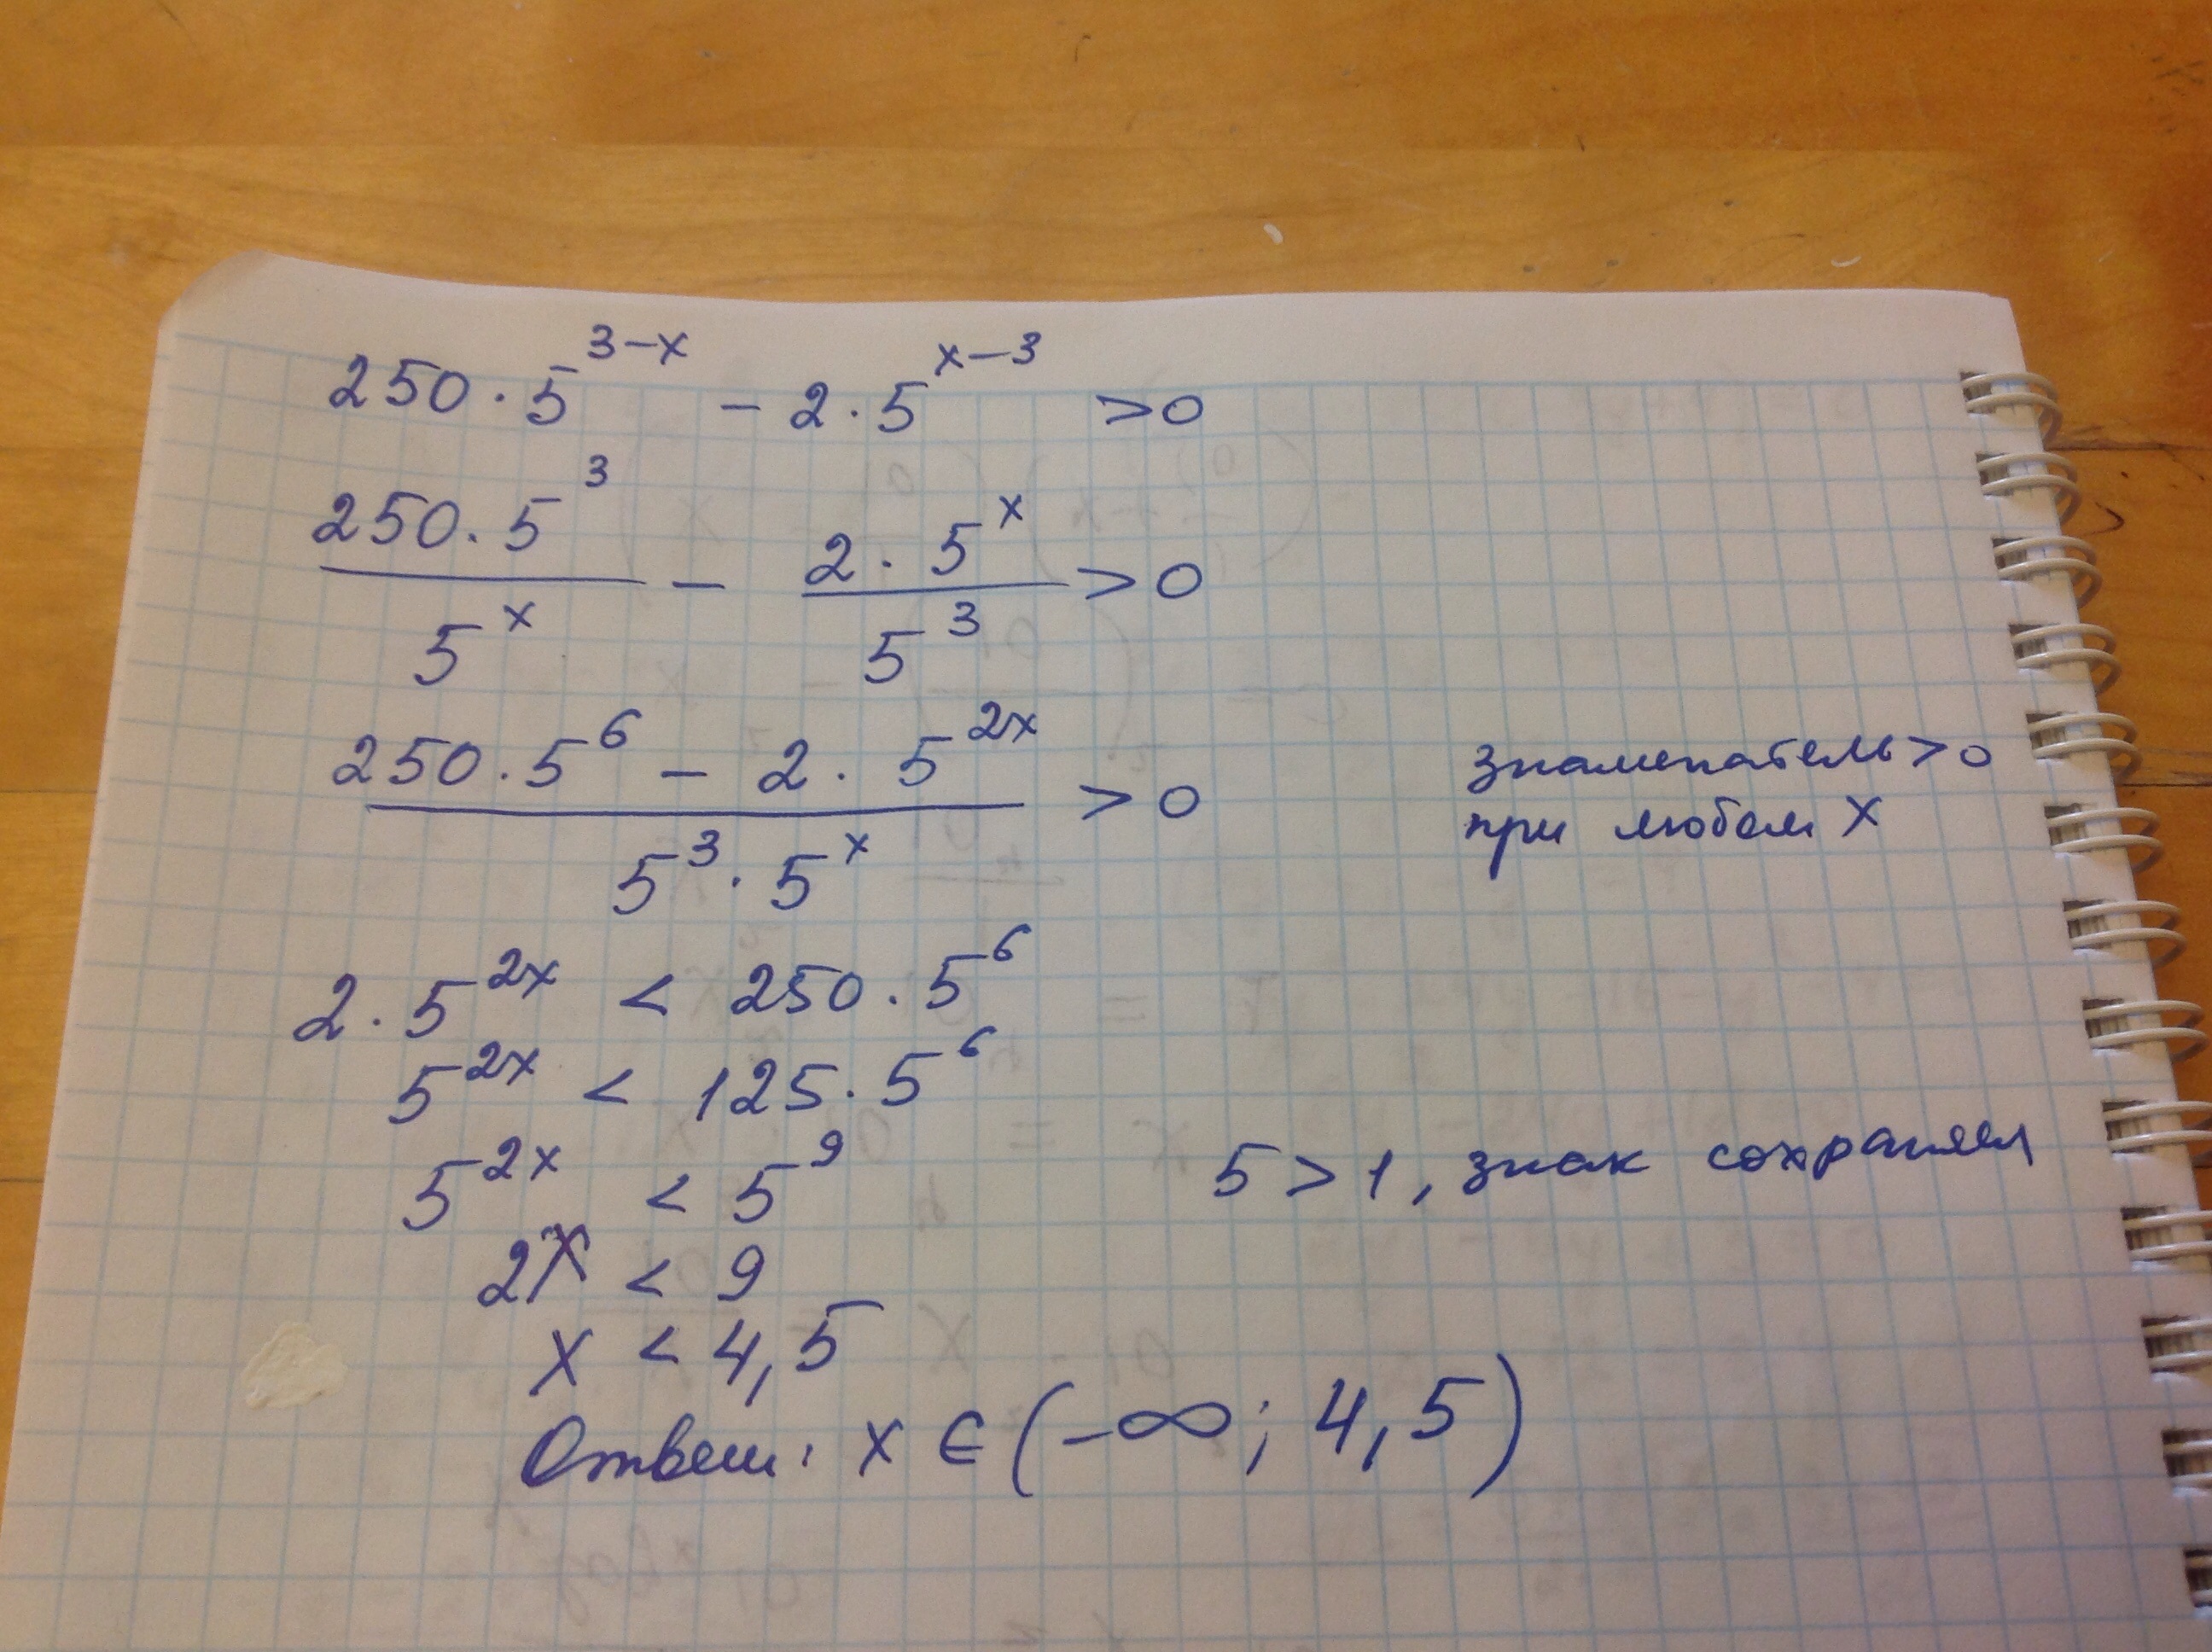 250 · 5^(3-x) - 2 · 5^(x-3) > 0
(250 · 5^3)/(5^x) - (2 · 5^x)/(5^3) > 0
(250 · 5^6 - 2 · 5^(2x))/(5^3 · 5^x) > 0
знаменатель > 0
при любом X
2 · 5^(2x) < 250 · 5^6
5^(2x) < 125 · 5^6
5^(2x) < 5^9
5 > 1, знак сохраняем
2x < 9
x < 4,5
Ответ: x ∈ (-∞; 4,5)